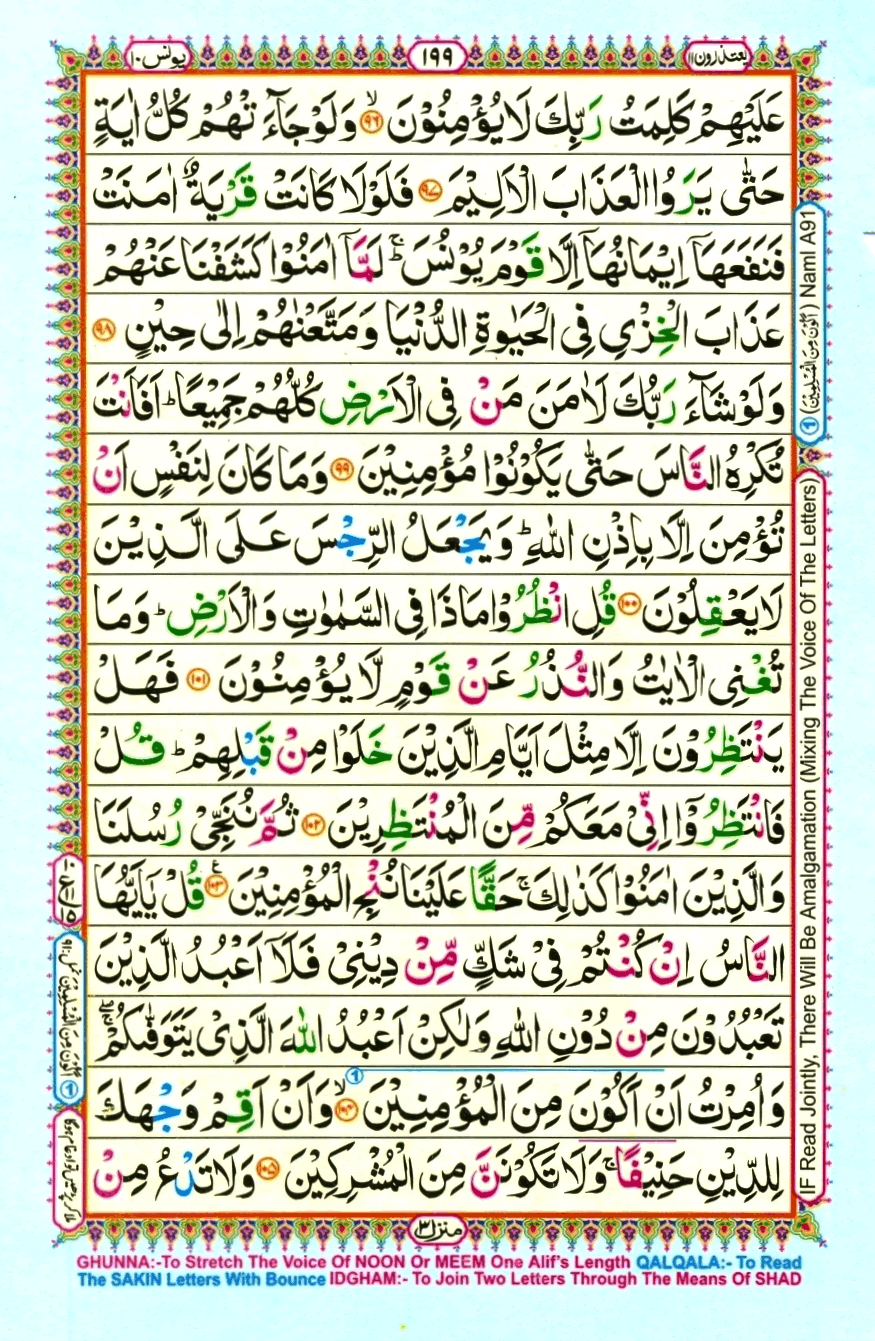 یعتذرون ۱۱
۱۹۹
یونس ۱۰
عَلَيْهِمْ كَلِمَتُ رَبِّكَ لَا يُؤْمِنُوْنَ ۙ﴿۹۶﴾ وَلَوْ جَآءَتْهُمْ كُلُّ اٰيَةٍ
حَتّٰى يَرَوُا الْعَذَابَ الْاَلِيْمَ ﴿۹۷﴾ فَلَوْلَا كَانَتْ قَرْيَةٌ اٰمَنَتْ
فَنَفَعَهَاۤ اِيْمَانُهَاۤ اِلَّا قَوْمَ يُوْنُسَ ؕۚ لَمَّاۤ اٰمَنُوْا كَشَفْنَا عَنْهُمْ
عَذَابَ الْخِزْىِ فِى الْحَيٰوةِ الدُّنْيَا وَمَتَّعْنٰهُمْ اِلٰى حِيْنٍ ﴿۹۸﴾
وَلَوْ شَآءَ رَبُّكَ لَاٰمَنَ مَنْ فِى الْاَرْضِ كُلُّهُمْ جَمِيْعًا ؕ اَفَاَنْتَ
تُكْرِهُ النَّاسَ حَتّٰى يَكُوْنُوْا مُؤْمِنِيْنَ ﴿۹۹﴾ وَمَا كَانَ لِنَفْسٍ اَنْ
تُؤْمِنَ اِلَّا بِاِذْنِ اللّٰهِ ؕ وَيَجْعَلُ الرِّجْسَ عَلَى الَّذِيْنَ
لَا يَعْقِلُوْنَ ﴿۱۰۰﴾ قُلِ انْظُرُوْا مَاذَا فِى السَّمٰوٰتِ وَالْاَرْضِ ؕ وَمَا
تُغْنِى الْاٰيٰتُ وَالنُّذُرُ عَنْ قَوْمٍ لَّا يُؤْمِنُوْنَ ﴿۱۰۱﴾ فَهَلْ
يَنْتَظِرُوْنَ اِلَّا مِثْلَ اَيَّامِ الَّذِيْنَ خَلَوْا مِنْ قَبْلِهِمْ ؕ قُلْ
فَانْتَظِرُوْۤا اِنِّىْ مَعَكُمْ مِّنَ الْمُنْتَظِرِيْنَ ﴿۱۰۲﴾ ثُمَّ نُنَجِّىْ رُسُلَنَا
وَالَّذِيْنَ اٰمَنُوْا كَذٰلِكَ ۚ حَقًّا عَلَيْنَا نُنْجِ الْمُؤْمِنِيْنَ ﴿۱۰۳﴾ قُلْ يٰۤاَيُّهَا
النَّاسُ اِنْ كُنْتُمْ فِىْ شَكٍّ مِّنْ دِيْنِىْ فَلَاۤ اَعْبُدُ الَّذِيْنَ
تَعْبُدُوْنَ مِنْ دُوْنِ اللّٰهِ وَلٰكِنْ اَعْبُدُ اللّٰهَ الَّذِىْ يَتَوَفّٰٮكُمْ
وَاُمِرْتُ اَنْ اَكُوْنَ مِنَ الْمُؤْمِنِيْنَ ۙ﴿۱۰۴﴾ وَاَنْ اَقِمْ وَجْهَكَ
لِلدِّيْنِ حَنِيْفًا ۚ وَلَا تَكُوْنَنَّ مِنَ الْمُشْرِكِيْنَ ﴿۱۰۵﴾ وَلَا تَدْعُ مِنْ
منزل ۳
① (اَكُوْنَ مِنَ الْمُسْلِمِيْنَ) Naml A91
IF Read Jointly, There Will Be Amalgamation (Mixing The Voice Of The Letters)
① اَكُوْنَ مِنَ الْمُسْلِمِيْنَ نمل:۹۱
ملا کر پڑھیں تو ادغام ہوگا
GHUNNA:-To Stretch The Voice Of NOON Or MEEM One Alif's Length QALQALA:- To Read
The SAKIN Letters With Bounce IDGHAM:- To Join Two Letters Through The Means Of SHAD